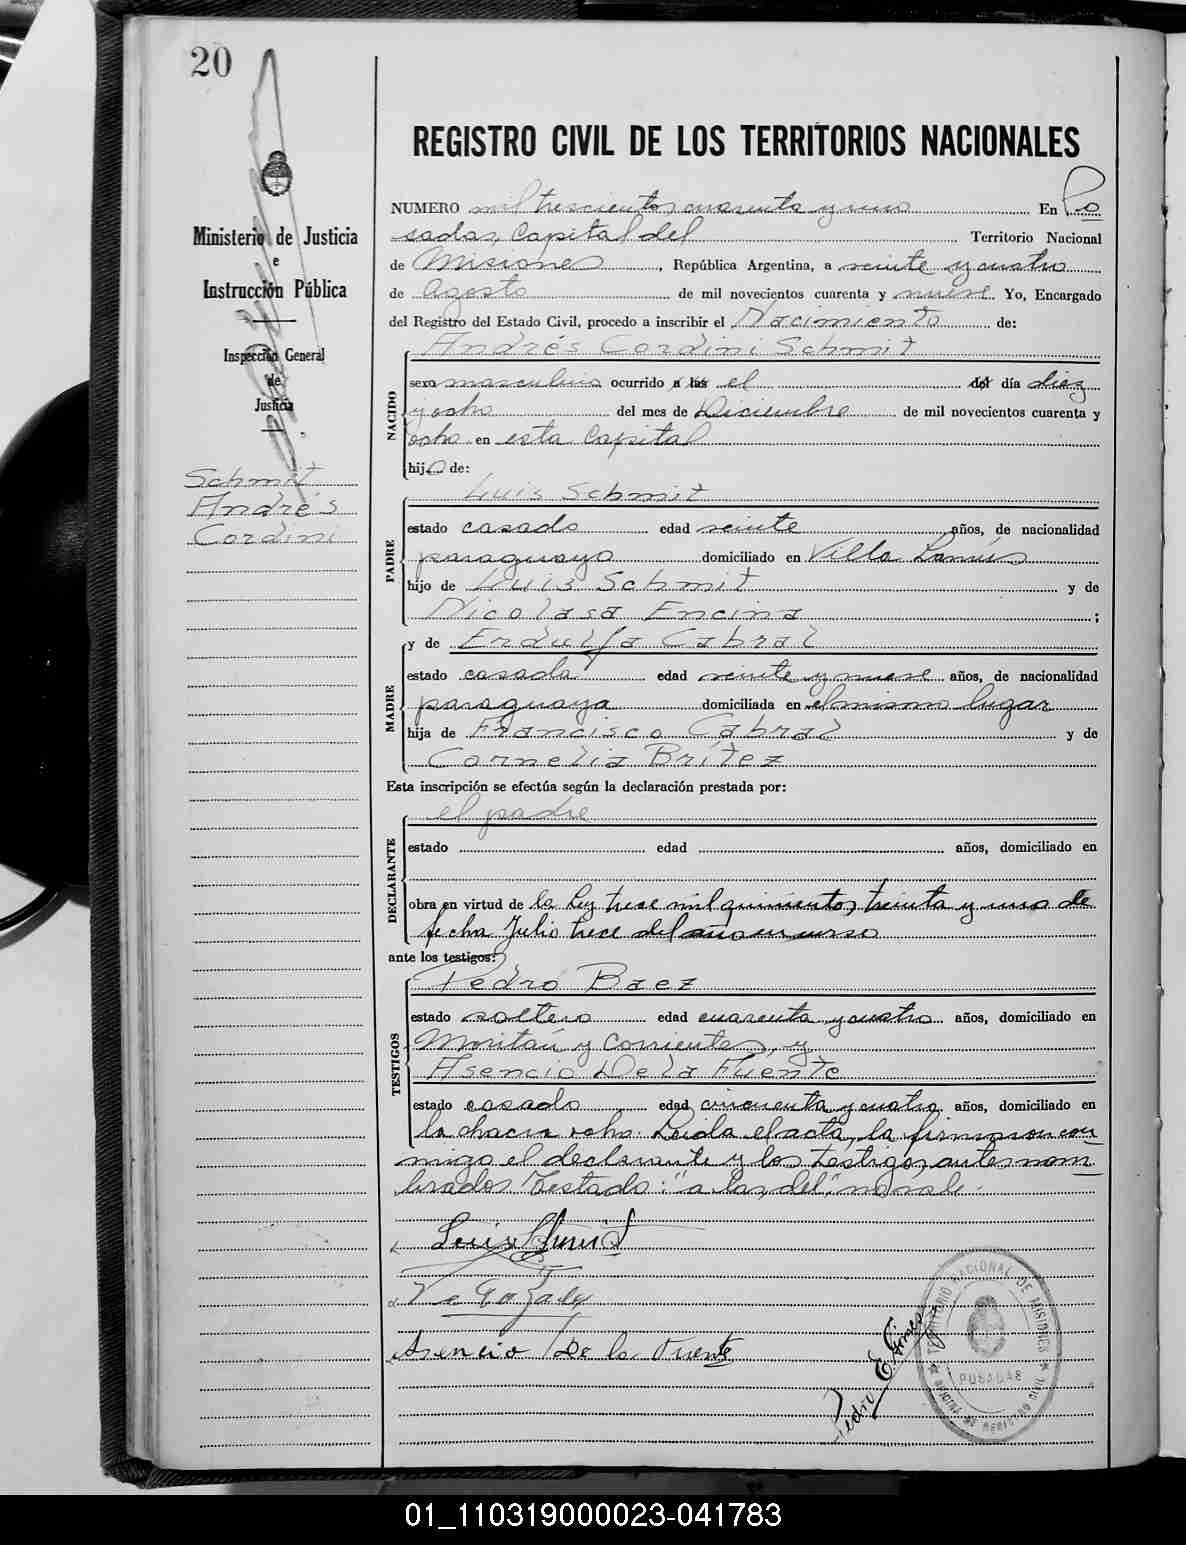 20
Ministerio de Justicia
e
Instrucción Pública
Inspección General
de
Justicia
Schmit
Andrés
Cordini
REGISTRO CIVIL DE LOS TERRITORIOS NACIONALES
NUMERO mil trescientos cuarenta y uno En Po
sadas, Capital del Territorio Nacional
de Misiones, República Argentina, a veinte y cuatro
de Agosto de mil novecientos cuarenta y nueve Yo, Encargado
del Registro del Estado Civil, procedo a inscribir el Nacimiento de:
Andrés Cordini Schmit
NACIDO
sexo masculino ocurrido a las el del día diez
y ocho del mes de Diciembre de mil novecientos cuarenta y
ocho en esta Capital
hijo de:
Luis Schmit
PADRE
estado casado edad veinte años, de nacionalidad
paraguayo domiciliado en Villa Lanús
hijo de Luis Schmit y de
Nicolasa Encina ;
y de Erdulfa Cabral
MADRE
estado casada edad veinte y nueve años, de nacionalidad
paraguaya domiciliada en el mismo lugar
hija de Francisco Cabral y de
Cornelia Brítez
Esta inscripción se efectúa según la declaración prestada por:
el padre
DECLARANTE
estado edad años, domiciliado en
obra en virtud de la Ley trece mil quinientos treinta y uno de
fecha Julio trece del año en curso
ante los testigos:
Pedro Baez
TESTIGOS
estado soltero edad cuarenta y cuatro años, domiciliado en
y Corrientes, y
Asencio De la Fuente
estado casado edad cincuenta y cuatro años, domiciliado en
la chacra ocho. Leida el acta, la firmaron con
migo el declarante y los testigos antes nom
brados Testado: "a las, del" no vale.
Luis Schmit
Asencio De la Fuente
Pedro E. Gimenez
TERRITORIO NACIONAL DE MISIONES
POSADAS
OFICINA DE REGISTRO CIVIL
01_110319000023-041783